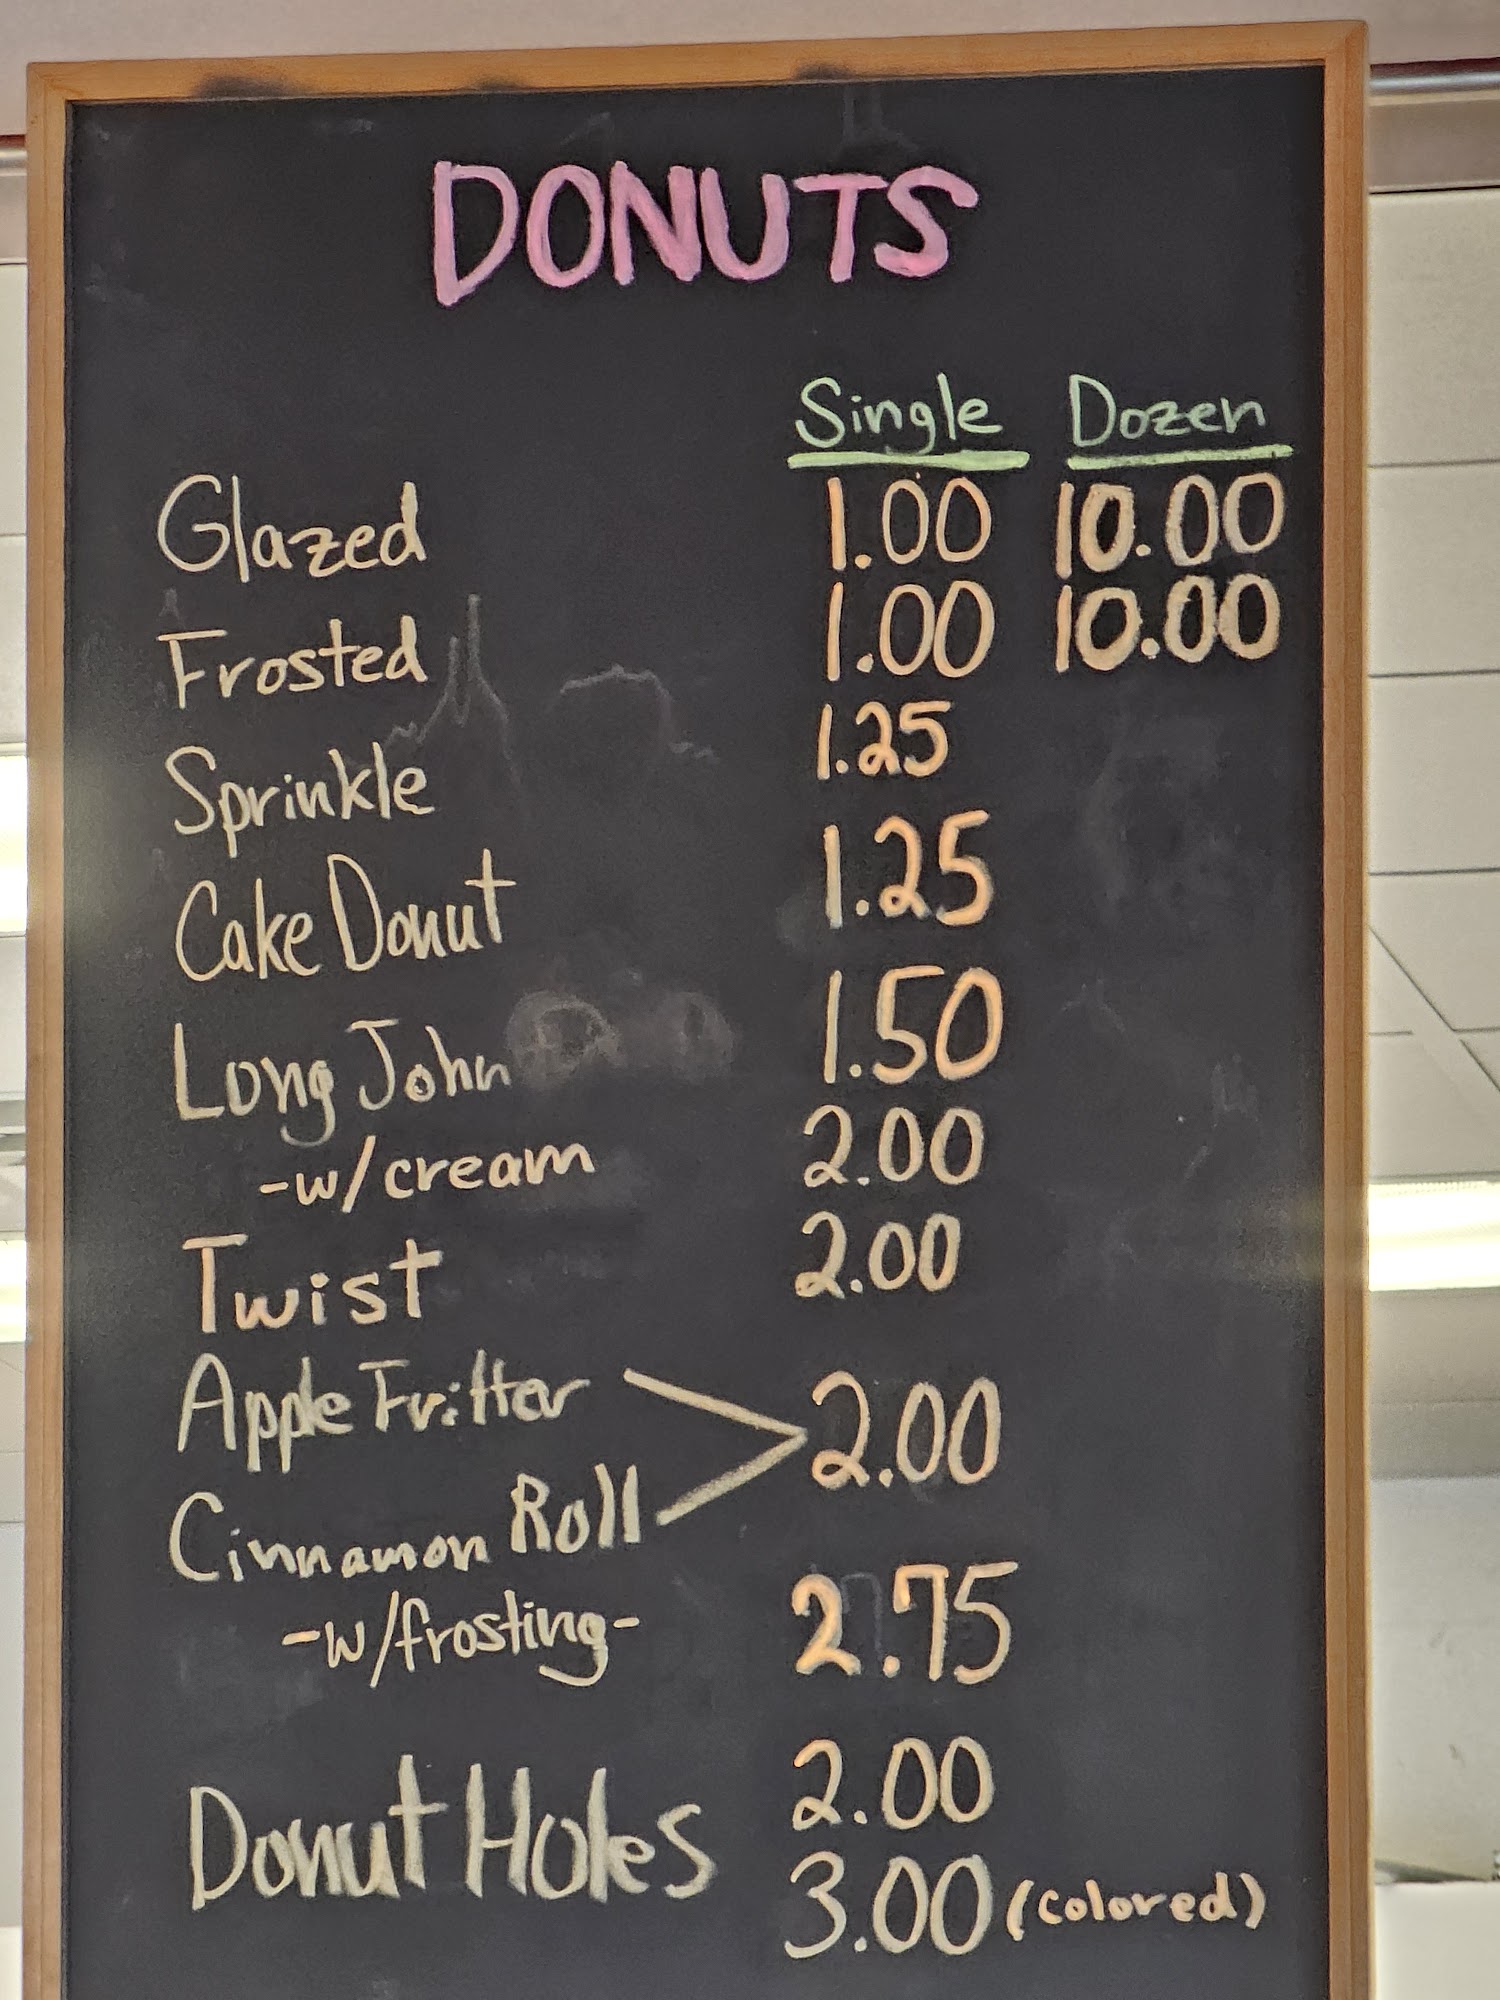 DONUTS
Single Dozen
Glazed 1.00 10.00
Frosted 1.00 10.00
Sprinkle 1.25
Cake Donut 1.25
Long John 1.50
-w/cream 2.00
Twist 2.00
Apple Fritter
2.00
Cinnamon Roll
-w/frosting- 2.75
Donut Holes 2.00
3.00 (colored)